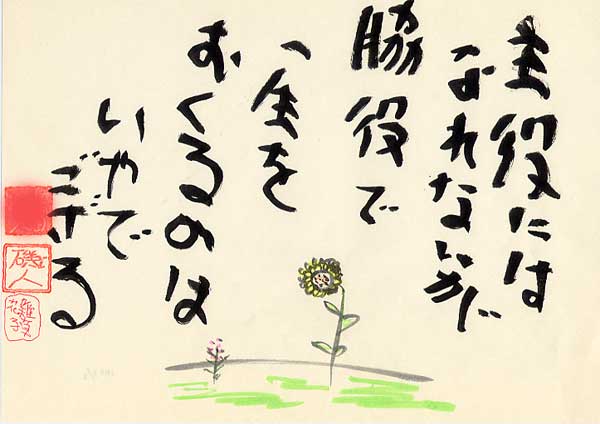 主役には
なれないが
脇役で
一生を
おくるのは
いやで
ござる
磯人